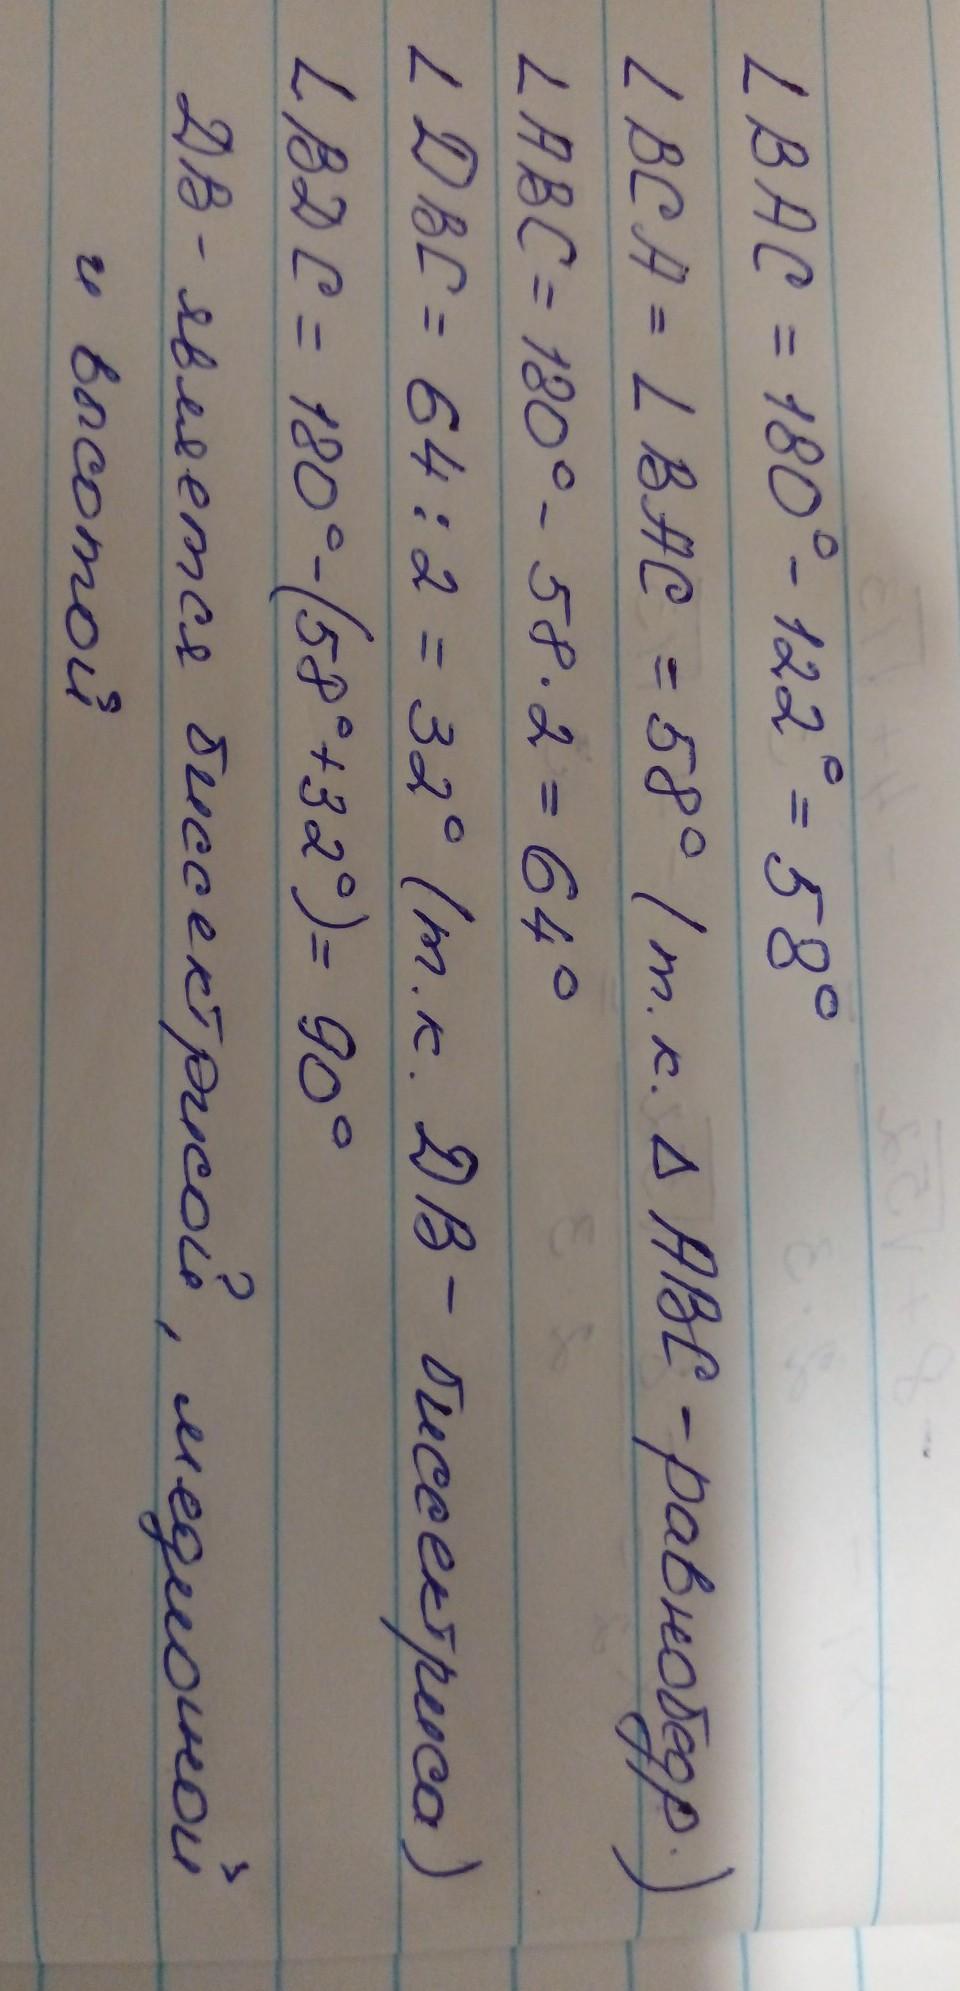 ∠BAC = 180° - 122° = 58°
∠BCA = ∠BAC = 58° (т.к. △ABC - равнобедр.)
∠ABC = 180° - 58 · 2 = 64°
∠DBC = 64 : 2 = 32° (т.к. DB - биссектриса)
∠BDC = 180° - (58° + 32°) = 90°
DB - является биссектрисой, медианной
и высотой